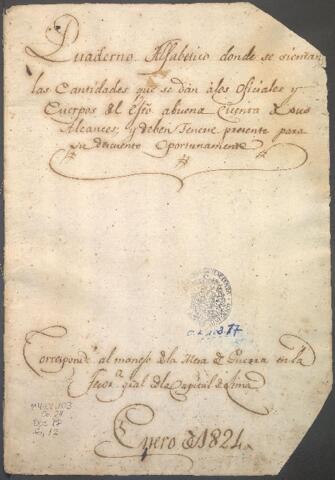 Quaderno Alfabetico donde se sientan
las Cantidades que se dàn àlos Oficiales y
Cuerpos del Exto. abuena Cuenta de sus
Alcances, y deben tenerse presente para
su descuento Oportunamente
O.L. 103.77
Corresponde al manejo de la Mesa de Guerra en la
Tesora. gral de la Capital de Lima
Enero de 1824.